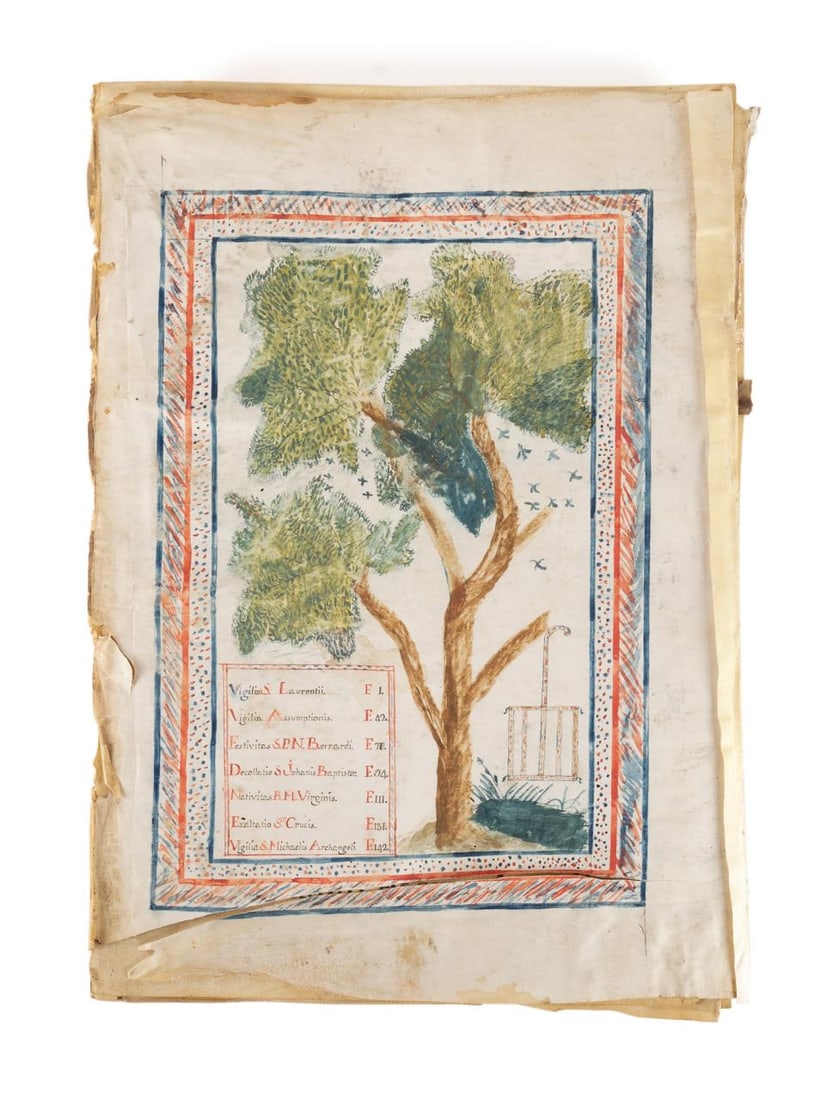 Vigilia S. Laurentii. F. 1.
Vigilia Assumptionis. F. 42.
Festivitas S.P.N. Bernardi. F. 71.
Decollatio S. Johanis Baptistæ F. 94.
Nativitas B.M. Virginis. F. 111.
Exaltatio Stæ Crucis. F. 131.
Vigilia S. Michaelis Archangeli F. 142.